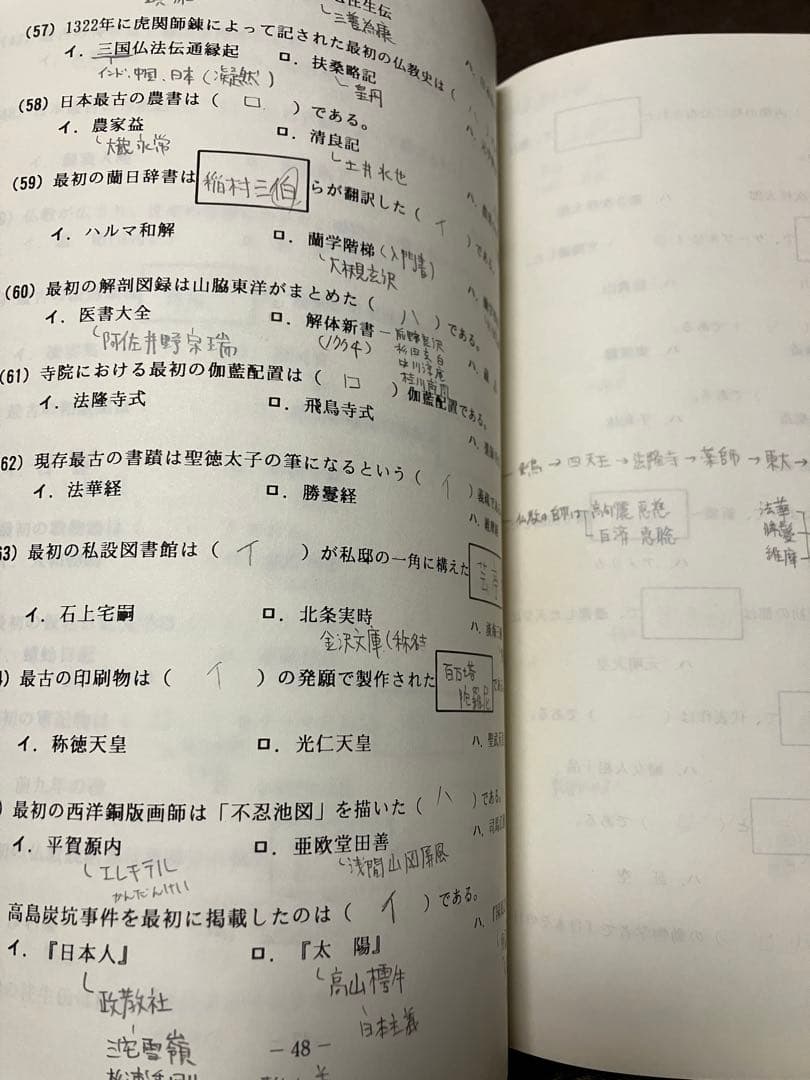 往生伝
三善為康
(57) 1322年に虎関師錬によって記された最初の仏教史は(ハ
イ. 三国仏法伝通縁起 ロ. 扶桑略記 ハ.
インド、中国、日本(凝然) 皇円
(58) 日本最古の農書は( ロ )である。
イ. 農家益 ロ. 清良記 ハ.
大蔵永常 土井水也
(59) 最初の蘭日辞書は 稲村三伯 らが翻訳した( イ )
イ. ハルマ和解 ロ. 蘭学階梯(入門書) ハ.
大槻玄沢
(60) 最初の解剖図録は山脇東洋がまとめた( ハ )である。
イ. 医書大全 ロ. 解体新書 ハ. 蔵
阿佐井野宗瑞 (1774) 前野良沢
杉田玄白
中川淳庵
桂川甫周
(61) 寺院における最初の伽藍配置は( ロ )伽藍配置である。
イ. 法隆寺式 ロ. 飛鳥寺式 ハ.
62) 現存最古の書蹟は聖徳太子の筆になるという( イ )義疏であ
イ. 法華経 ロ. 勝鬘経 ハ. 維摩
63) 最初の私設図書館は( イ )が私邸の一角に構えた 芸亭
イ. 石上宅嗣 ロ. 北条実時 ハ.
金沢文庫(称名寺
4) 最古の印刷物は( イ )の発願で製作された 百万塔陀羅尼 であ
イ. 称徳天皇 ロ. 光仁天皇 ハ. 聖武天
) 最初の西洋銅版画師は「不忍池図」を描いた( ハ )である。
イ. 平賀源内 ロ. 亜欧堂田善 ハ. 司馬江
エレキテル 浅間山図屏風
かんだんけい
高島炭坑事件を最初に掲載したのは( イ )である。
イ. 『日本人』 ロ. 『太 陽』 ハ.
政教社 高山樗牛
三宅雪嶺 日本主義
－48－
→四天王→法隆寺→薬師→東大→
仏教の師は 高句麗 恵慈
百済 恵聡
法華
勝鬘
維摩